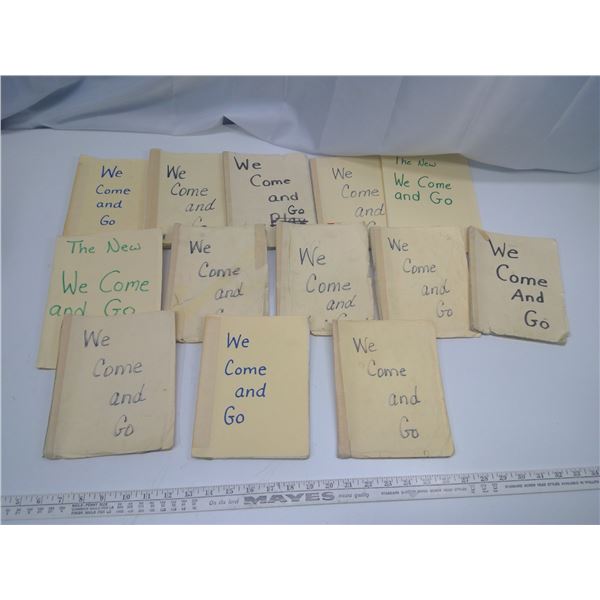 We
Come
and
Go
We
Come
and
Go
We
Come
and
Go
Play
We
Come
and
Go
The New
We Come
and Go
The New
We Come
and Go
We
Come
and
Go
We
Come
and
Go
We
Come
and
Go
We
Come
And
Go
We
Come
and
Go
We
Come
and
Go
We
Come
and
Go
On the level
MAYES